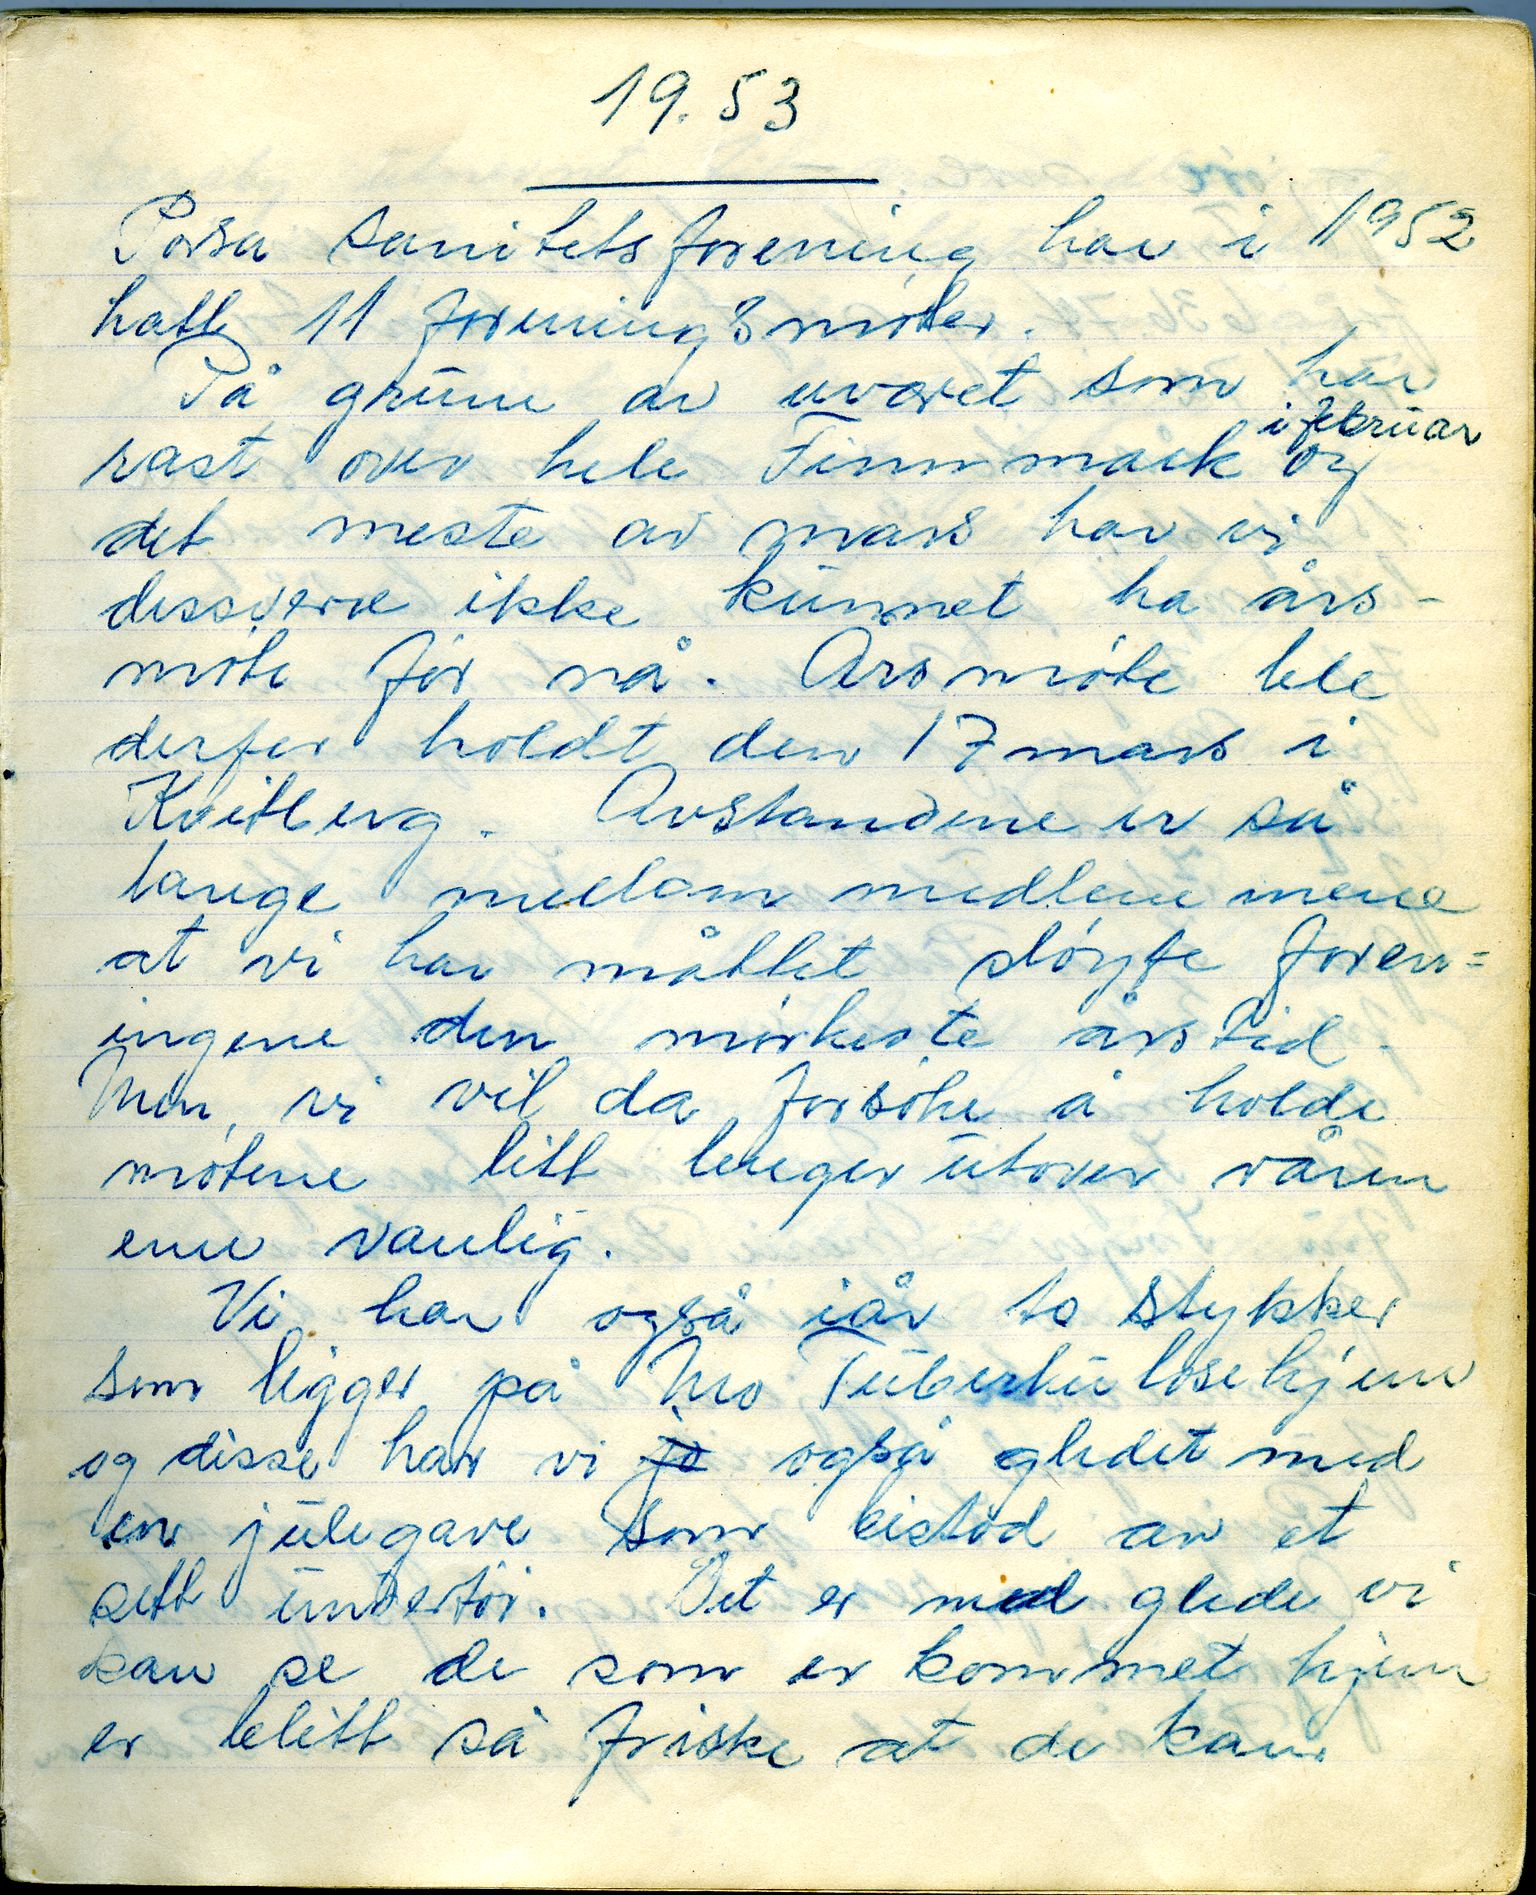 19.53
Porsa sanitetsforening har i 1952
hatt 11 foreningsmøter.
På grunn av uværet som har
i februar
rast over hele Finnmark og
det meste av mars har vi
dessverre ikke kunnet ha års-
møte før nå. Årsmøte ble
derfor holdt den 17 mars i
Kvitberg. Avstandene er så
lange mellom medlemmene
at vi har måttet sløyfe foren=
ingene den mørkeste årstid.
Men, vi vil da forsøke å holde
møtene litt lenger utover våren
enn vanlig.
Vi har også iår to stykker
som ligger på Mo Tuberkulosehjem
og disse har vi jo også gledet med
en julegave som bistod av et
sett undertøi. Det er med glede vi
kan se de som er kommet hjem
er blitt så friske at de kan